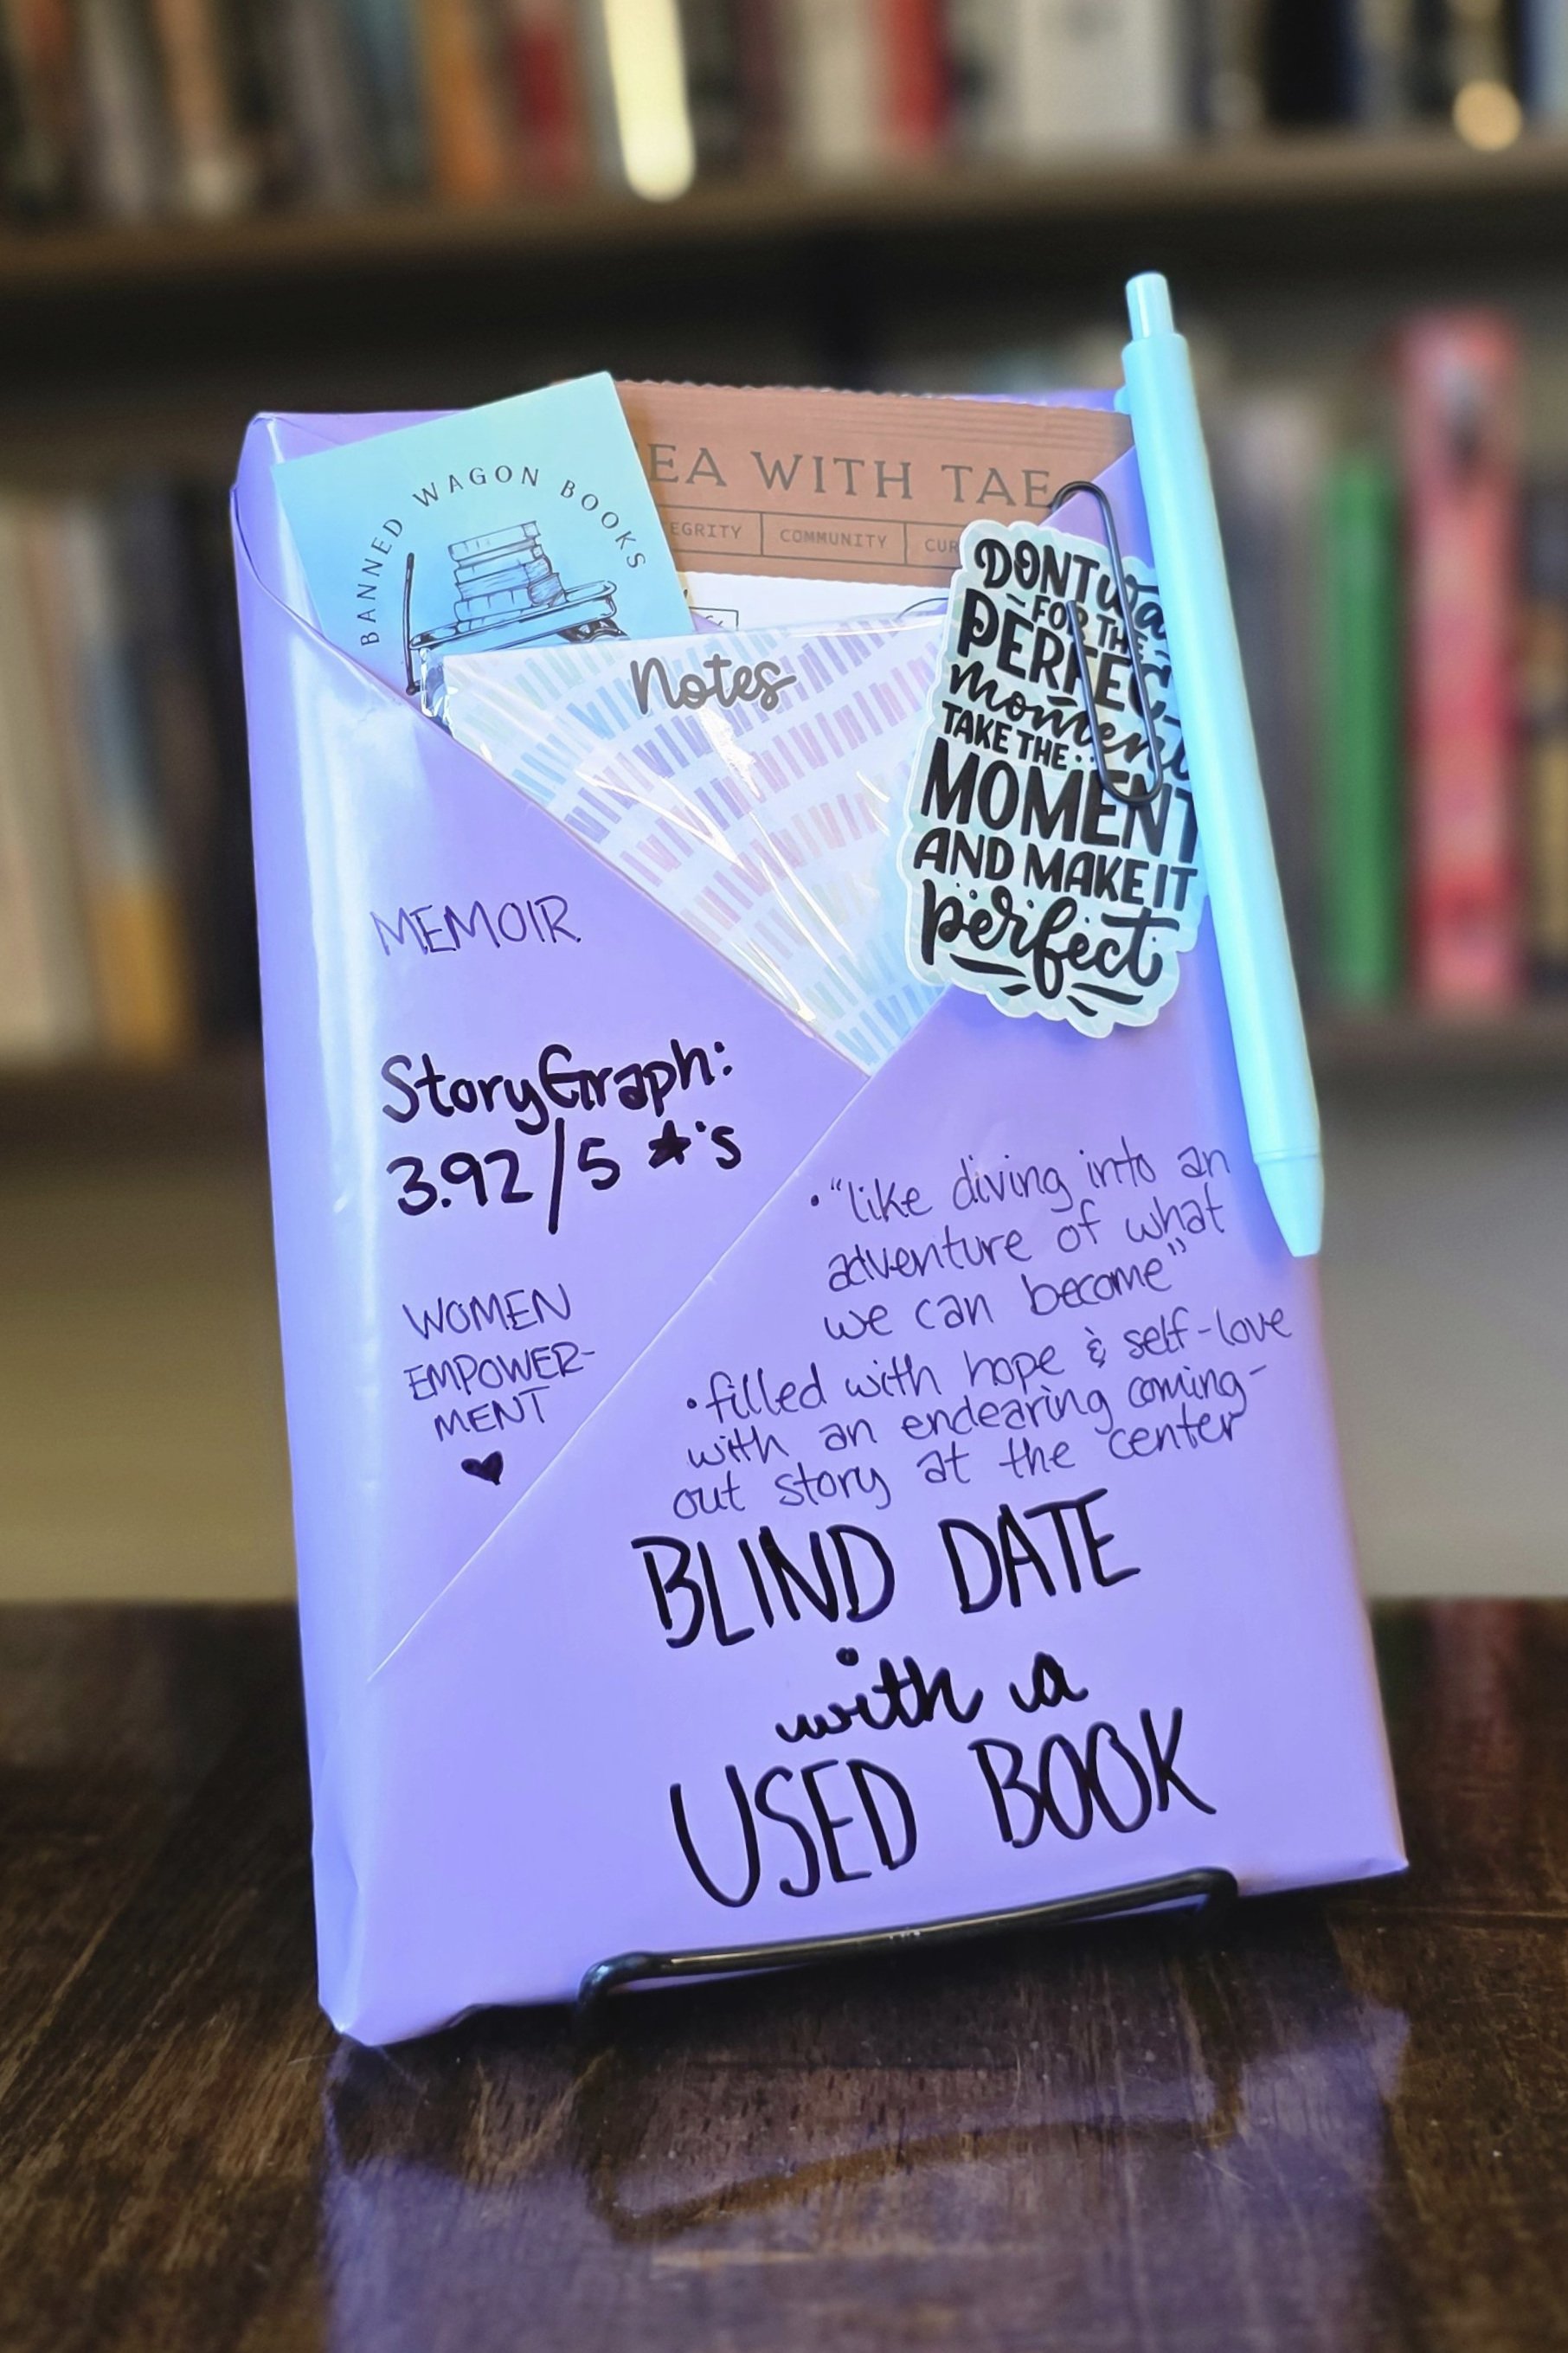 BANNED WAGON BOOKS
EA WITH TAE
EGRITY
COMMUNITY
CUR
Notes
DON'T WA
FOR THE
PERFEC
moment
TAKE THE
MOMENT
AND MAKE IT
perfect
MEMOIR
StoryGraph:
3.92/5 ★'s
WOMEN
EMPOWER-
MENT
♥
• "like diving into an
adventure of what
we can become"
• filled with hope & self-love
with an endearing coming-
out story at the center
BLIND DATE
with a
USED BOOK